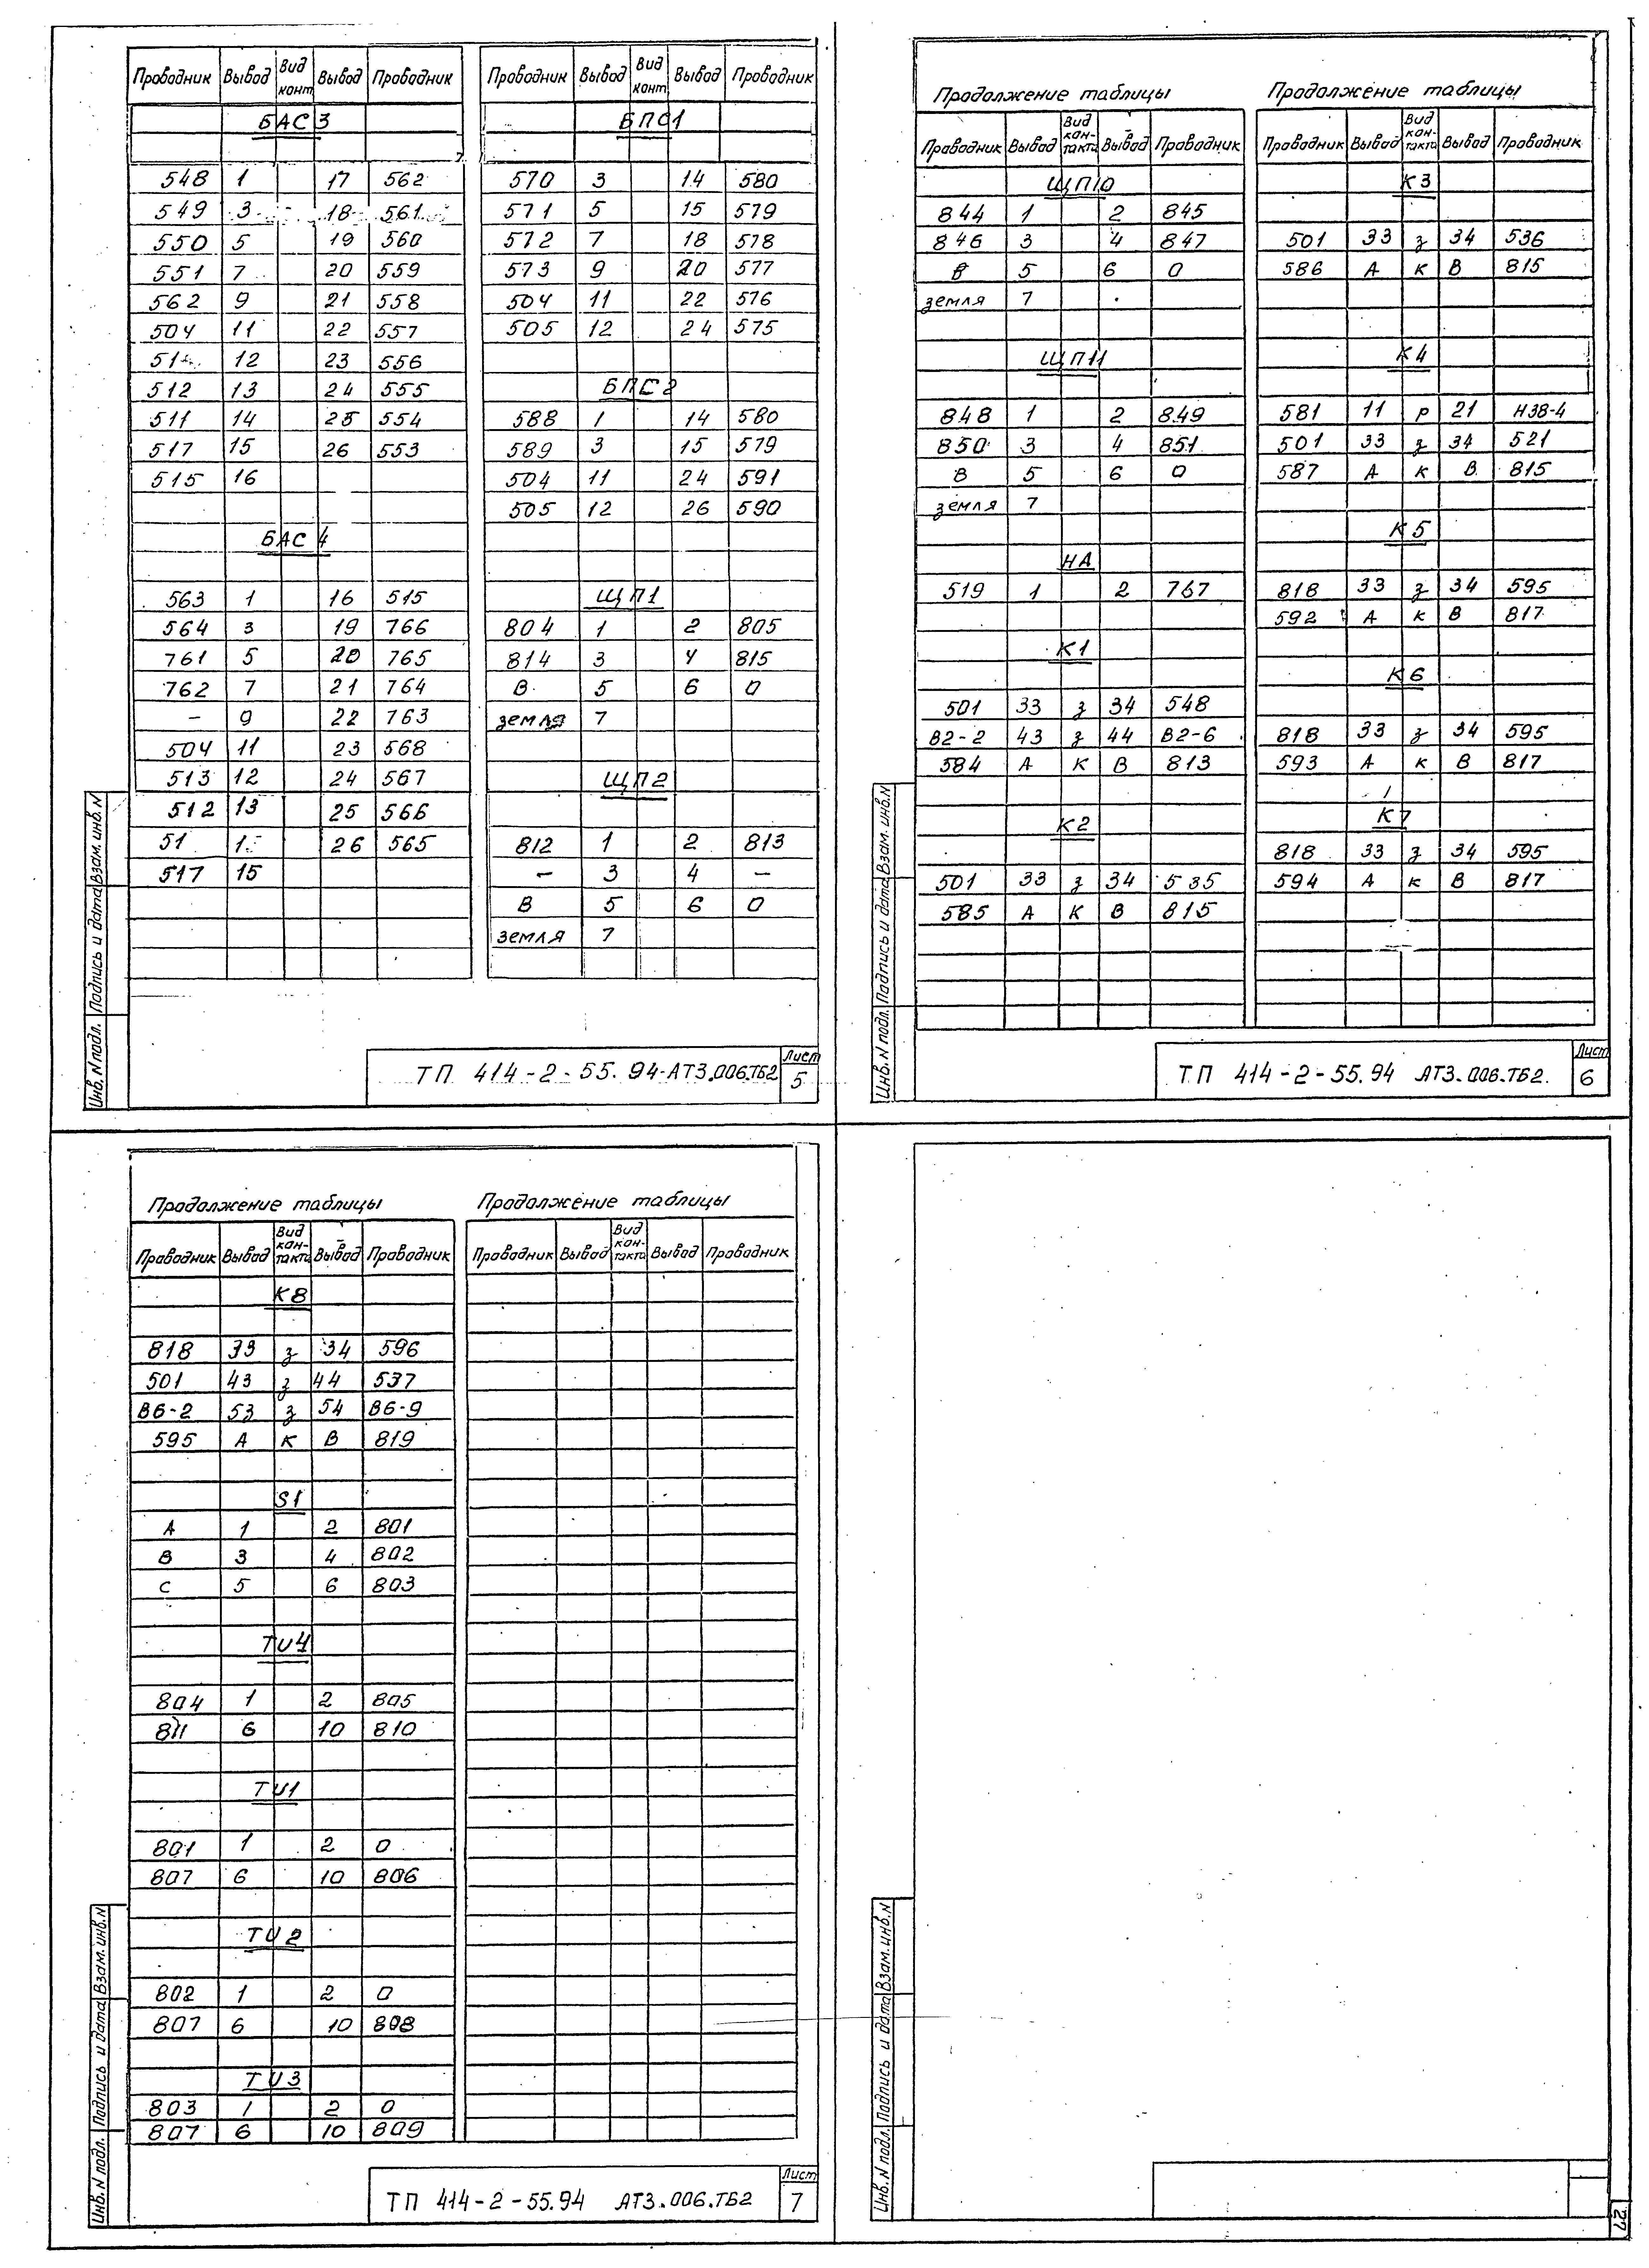 Проводник Вывод Вид конт Вывод Проводник
БАС3
548 1 17 562
549 3 18 561
550 5 19 560
551 7 20 559
562 9 21 558
504 11 22 557
12 23 556
512 13 24 555
511 14 25 554
517 15 26 553
515 16
БАС4
563 1 16 515
564 3 19 766
761 5 20 765
762 7 21 764
– 9 22 763
504 11 23 568
513 12 24 567
512 13 25 566
51 26 565
517 15
Проводник Вывод Вид конт Вывод Проводник
БПС1
570 3 14 580
571 5 15 579
572 7 18 578
573 9 20 577
504 11 22 576
505 12 24 575
БПС2
588 1 14 580
589 3 15 579
504 11 24 591
505 12 26 590
ЩП1
804 1 2 805
814 3 4 815
В 5 6 0
земля 7
ЩП2
812 1 2 813
– 3 4 –
В 5 6 0
земля 7
Инв. N подл. Подпись и дата Взам. инв. N
ТП 414-2-55.94-АТ3.006.ТБ2
Лист
5
Продолжение таблицы
Проводник Вывод Вид кон-такта Вывод Проводник
ЩП10
844 1 2 845
846 3 4 847
В 5 6 0
земля 7
ЩП11
848 1 2 849
850 3 4 851
В 5 6 0
земля 7
НА
519 1 2 767
К1
501 33 з 34 548
В2-2 43 з 44 В2-6
584 А К В 813
К2
501 33 з 34 535
585 А К В 815
Продолжение таблицы
Проводник Вывод Вид кон-такта Вывод Проводник
К3
501 33 з 34 536
586 А к В 815
К4
581 11 р 21 Н38-4
501 33 з 34 521
587 А к В 815
К5
818 33 з 34 595
592 А к В 817
К6
818 33 з 34 595
593 А к В 817
К7
818 33 з 34 595
594 А к В 817
Инв. N подл. Подпись и дата Взам. инв. N
ТП 414-2-55.94 АТ3.006.ТБ2.
Лист
6
Продолжение таблицы
Проводник Вывод Вид кон-такта Вывод Проводник
К8
818 33 з 34 596
501 43 з 44 537
В6-2 53 з 54 В6-9
595 А К В 819
S1
А 1 2 801
В 3 4 802
С 5 6 803
TU4
804 1 2 805
811 6 10 810
TU1
801 1 2 0
807 6 10 806
TU2
802 1 2 0
807 6 10 808
TU3
803 1 2 0
807 6 10 809
Продолжение таблицы
Проводник Вывод Вид кон-такта Вывод Проводник
Инв. N подл. Подпись и дата Взам. инв. N
ТП 414-2-55.94 АТ3.006.ТБ2
Лист
7
Инв. N подл. Подпись и дата Взам. инв. N
27